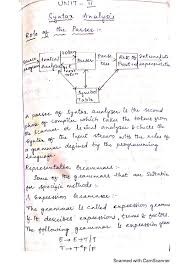 UNIT - II
Syntax Analysis
Role of the Parser:-
Parser
Parse tree
Symbol Table
A parser or Syntax analyzer is the second
phase of compiler which takes the tokens from
the Scanner or lexical analyzer & checks the
Syntax of the input stream with the rules of
a grammar defined by the programming
language.
Representation Grammars:-
Some of the grammars that are suitable
for specific methods:-
Expression Grammar:-
The grammar is called expression grammar
if it describes expressions, terms & factors.
The following grammar is expression grammar
E → E + T | T
T → T * F | F
Scanned with CamScanner